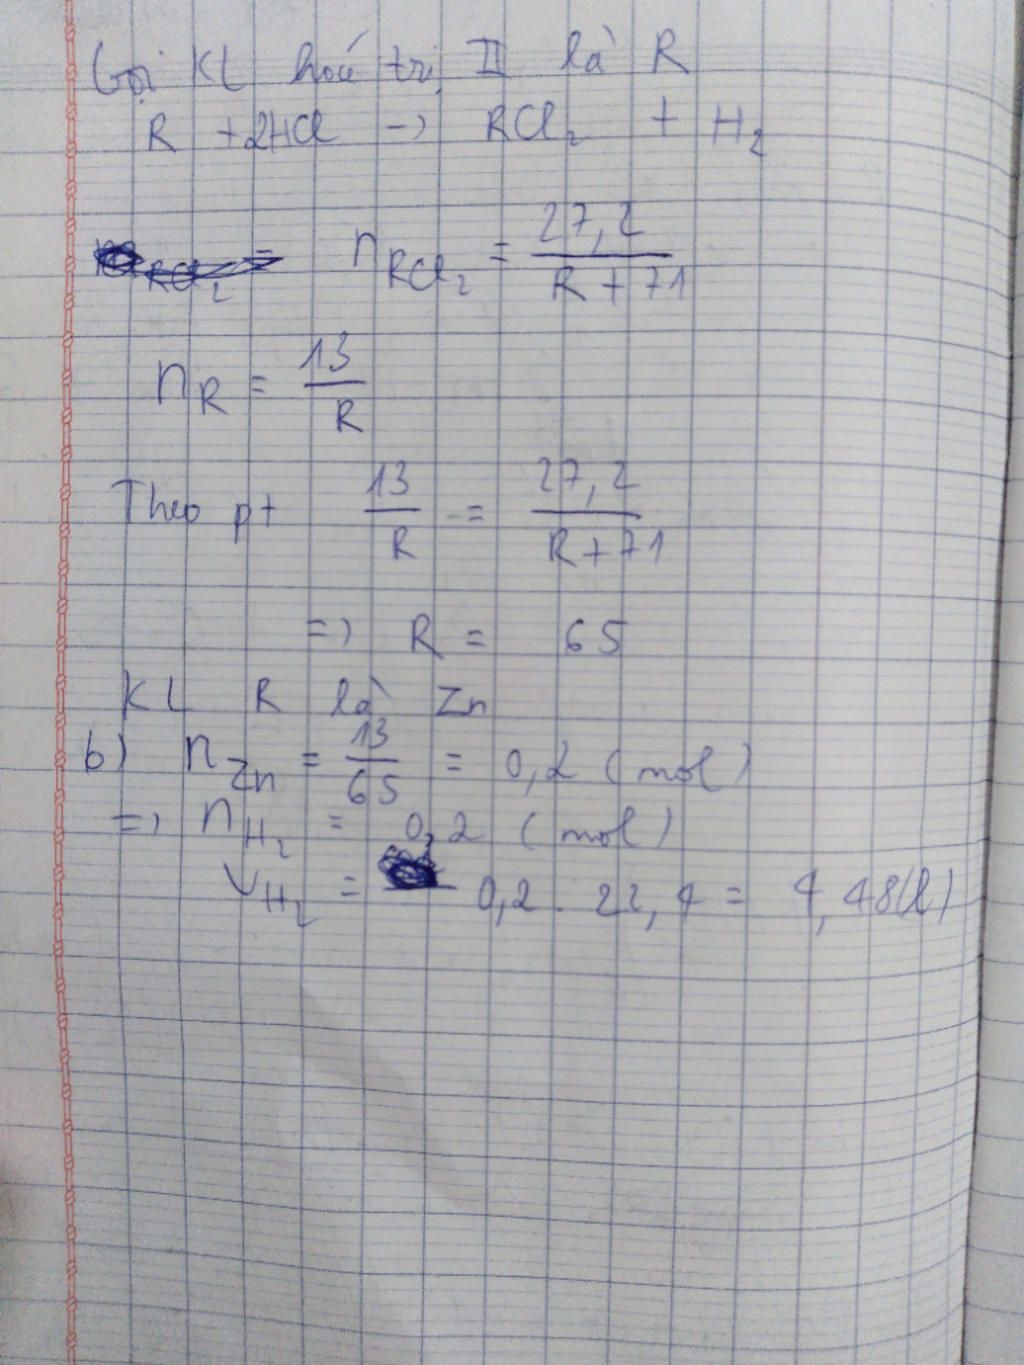 Gọi KL hoá trị II là R
R + 2HCl -> RCl2 + H2
nRCl2 = 27,2 / (R + 71)
nR = 13 / R
Theo pt 13 / R = 27,2 / (R + 71)
=> R = 65
KL R là Zn
b) nZn = 13 / 65 = 0,2 (mol)
=> nH2 = 0,2 (mol)
VH2 = 0,2 . 22,4 = 4,48 (l)